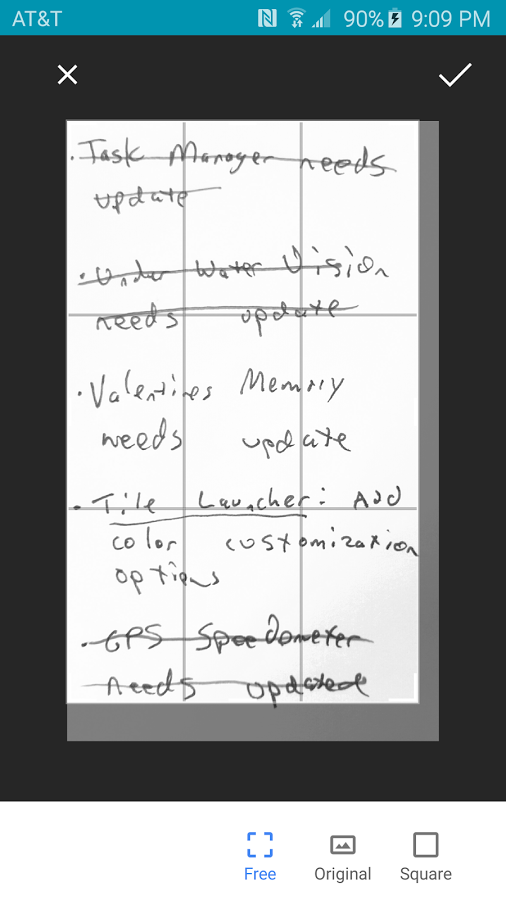 AT&T 90% 9:09 PM
· Task Manager needs
update
· Under Water Vision
needs update
· Valentines Memory
needs update
· Tile Launcher: Add
color customization
options
· GPS Speedometer
needs updated
Free Original Square